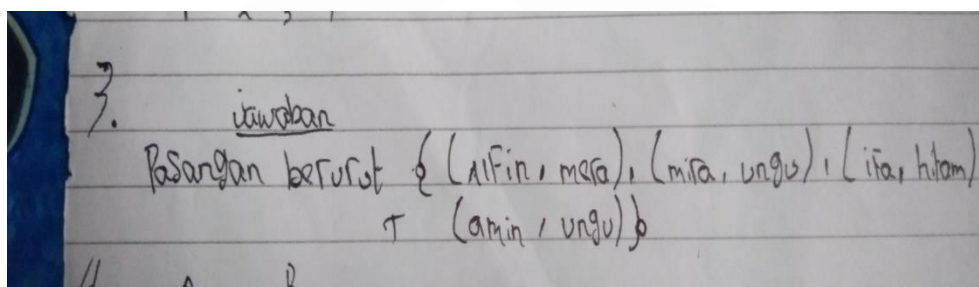 3.
Jawaban
Pasangan berurut {(Alfin, mera), (mira, ungu), (ifa, hitam)
(amin, ungu)}